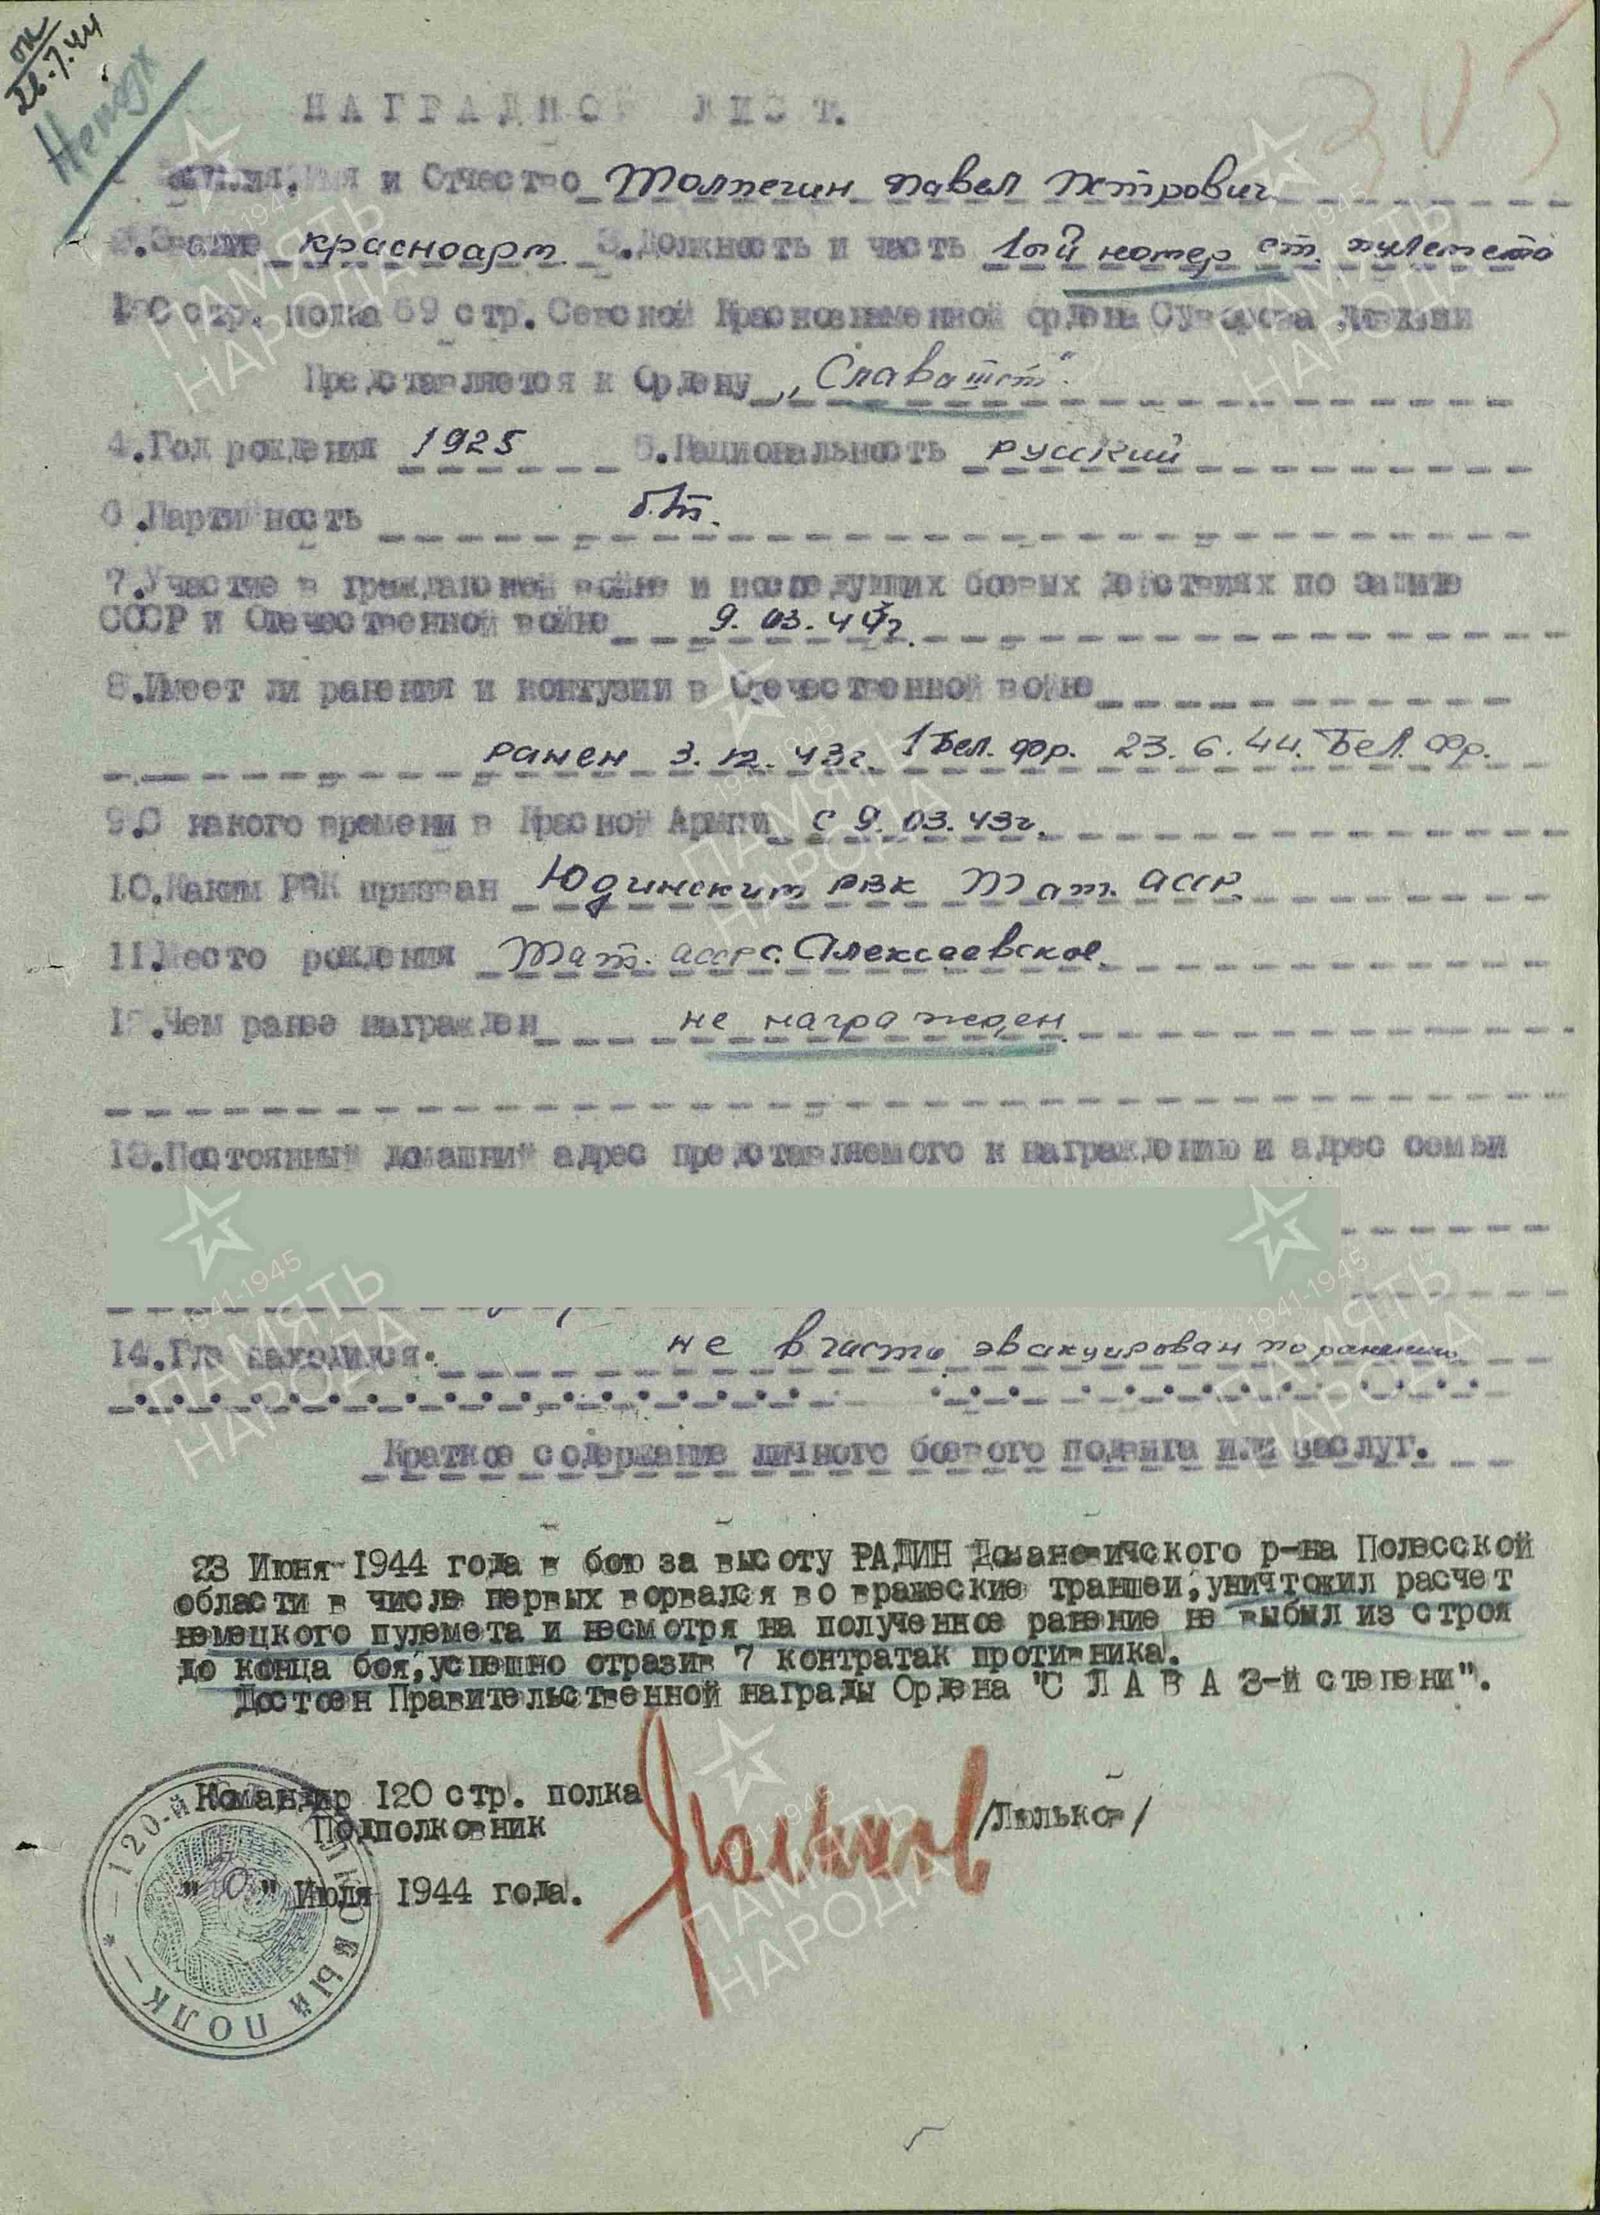 ок
26.7.44
НАГРАДНОЙ ЛИСТ.
305
Фамилия, Имя и Отчество Толпегин Павел Петрович
2.Звание красноарм. 3.Должность и часть 1ый номер ст. пулемета
120 стр. полка 69 стр. Севской Краснознаменной ордена Суворова дивизии
Представляется к Ордену „Слава IIIст"
4.Год рождения 1925 5.Национальность русский
6.Партийность б.п.
7.Участие в гражданской войне и последующих боевых действиях по защите
СССР и Отечественной войне 9.03.43г.
8.Имеет ли ранения и контузии в Отечественной войне
ранен 3.12.43г. 1 Бел. фр. 23.6.44. Бел. фр.
9.С какого времени в Красной Армии с 9.03.43г.
10.Каким РВК призван Юдинским РВК Тат. АССР
11.Место рождения Тат. АССР с. Алексеевское
12.Чем ранее награжден не награжден
13.Постоянный домашний адрес представляемого к награждению и адрес семьи
14.Где находился. не в части эвакуирован по ранению
Краткое содержание личного боевого подвига или заслуг.
23 Июня 1944 года в бою за высоту РАДИН Домановичского р-на Полесской
области в числе первых ворвался во вражеские траншеи, уничтожил расчет
немецкого пулемета и несмотря на полученное ранение не выбыл из строя
до конца боя, успешно отразив 7 контратак противника.
Достоен Правительственной награды Ордена "С Л А В А 3-й степени".
Командир 120 стр. полка
Подполковник /Люльков/
"20" Июля 1944 года.
120-й СТРЕЛКОВЫЙ ПОЛК
ПАМЯТЬ НАРОДА 1941-1945